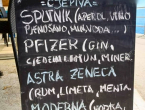 ~CJEPIVA~
SPUTNIK (APEROL, VINO
PJENUŠAVO, MIN. VODA...)
PFIZER (GIN,
CIJEĐENI LIMUN, MINER.
ASTRA ZENECA
(RUM, LIMETA, MENTA,
MODERNA (VODKA,